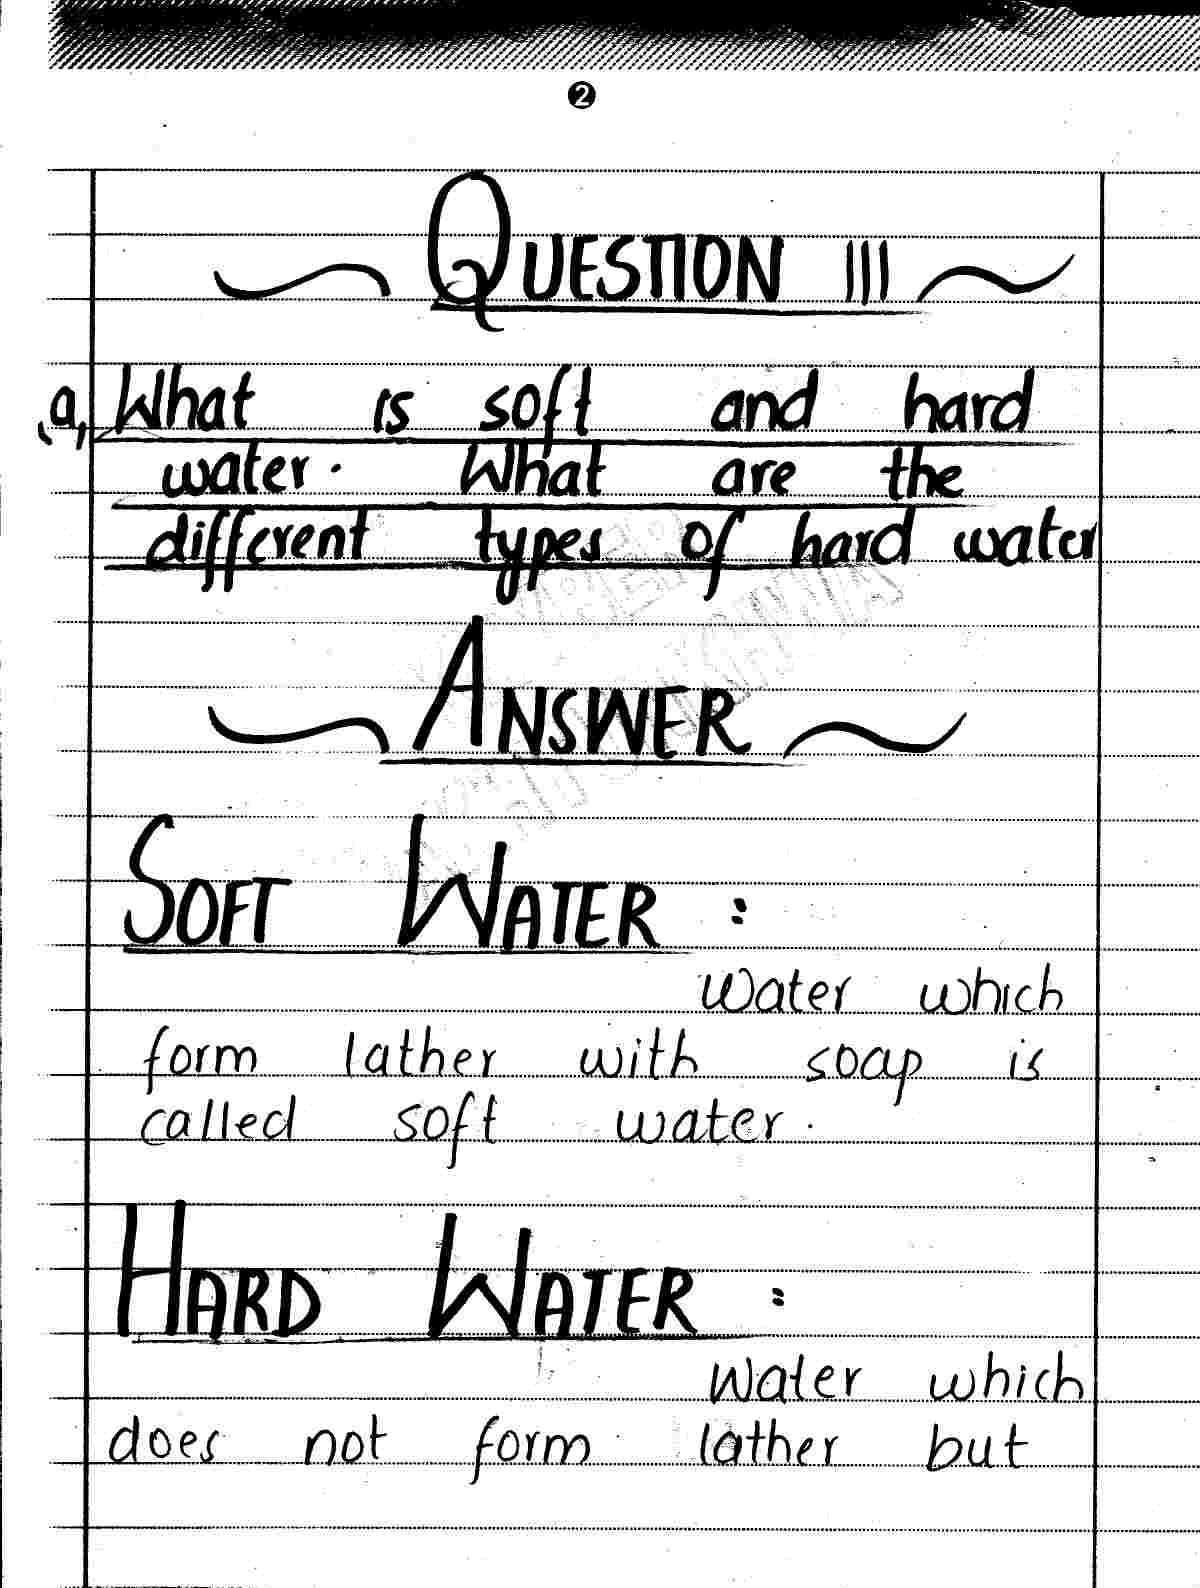 2
QUESTION III
a, What is soft and hard
water. What are the
different types of hard water
ANSWER
SOFT WATER :
Water which
form lather with soap is
called soft water.
HARD WATER :
Water which
does not form lather but